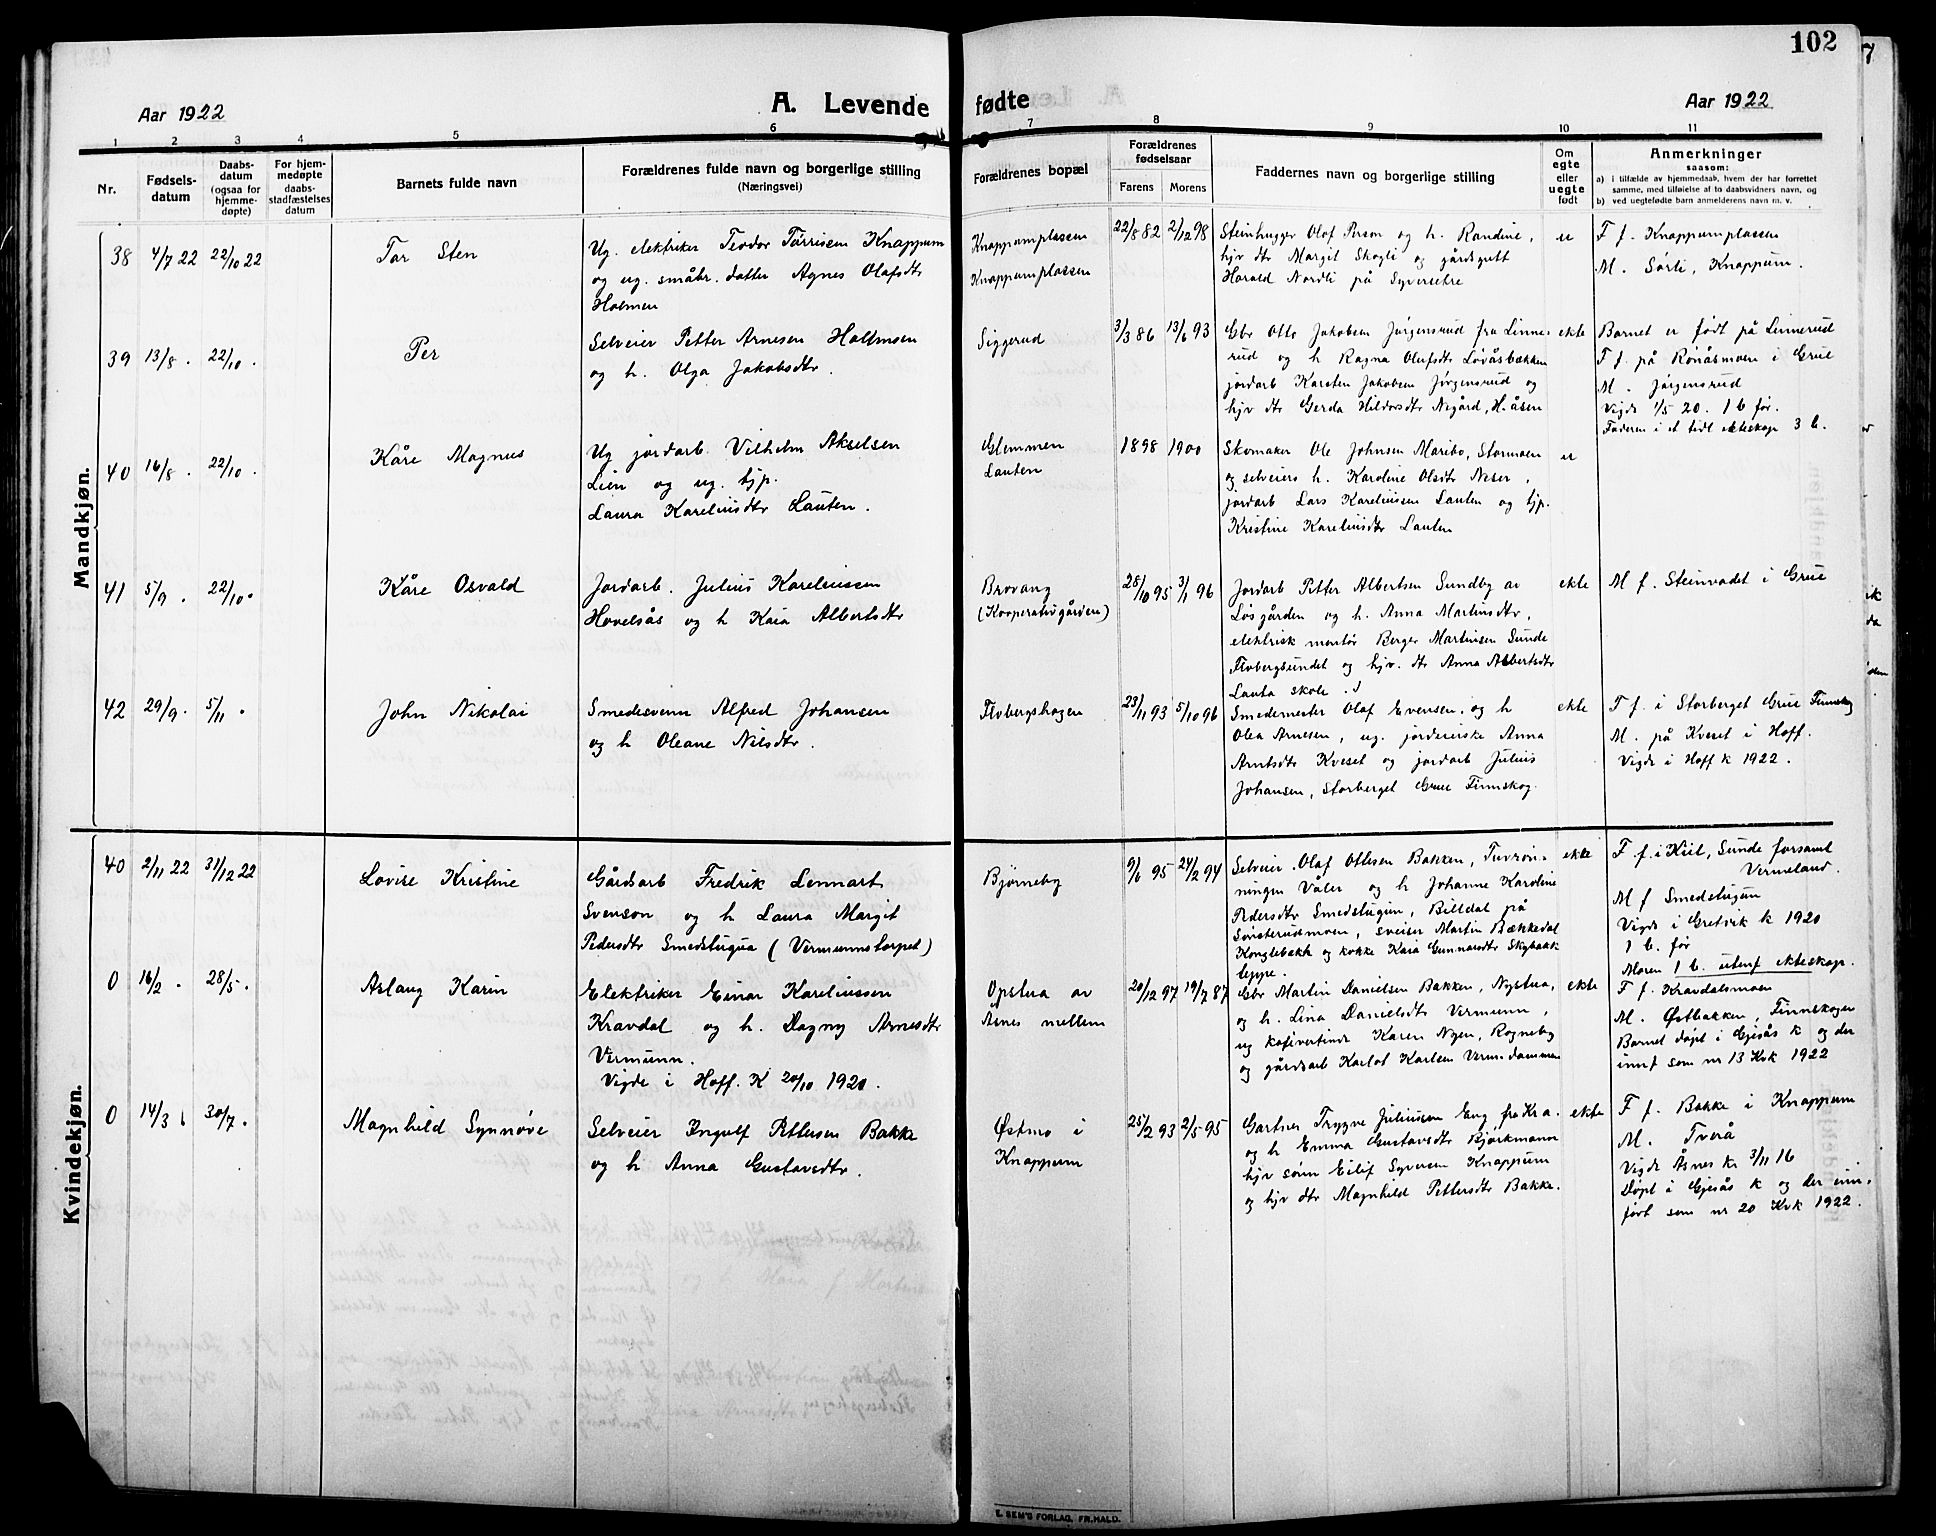 102
Aar 1922
A. Levende fødte
Aar 1922
1 2 3 4 5 6 7 8 9 10 11
Nr.
Fødsels-
datum
Daabs-
datum
(ogsaa for
hjemme-
døpte)
For hjem-
medøpte
daabs-
stadfæstelses
datum
Barnets fulde navn
Forældrenes fulde navn og borgerlige stilling
(Næringsvei)
Forældrenes bopæl
Forældrenes
fødselsaar
Farens Morens
Faddernes navn og borgerlige stilling
Om
egte
eller
uegte
født
Anmerkninger
saasom:
a) i tilfælde av hjemmedaab, hvem der har forrettet
samme, med tilføielse af to daabsvidners navn, og
b) ved uegtefødte barn anmelderens navn m. v.
Mandkjøn.
38 4/7 22 22/10 22
Tor Sten
Ug. elektriker Teodor Tørrisen Knappum
og ug. småbr. datter Agnes Olafsdtr
Holmen
Knappumplassen
Knappumplassen
22/8 82 2/12 98
Steinhugger Olof Person og h. Randine,
hjv dtr Margit Skogli og gårdsgutt
Harald Nordli på Syversætre
u
F f. Knappumplassen
M. Sørli, Knappum.
39 13/8 . 22/10 .
Per
Selveier Petter Arnesen Holtmoen
og h. Olga Jakobsdtr.
Siggerud
3/3 86 13/6 93
Gbr Otto Jakobsen Jørgensrud fra Linne-
rud og h Ragna Olufsdtr Lövåsbækken
jordarb Karsten Jakobsen Jørgensrud og
hjv dtr Gerda Hildorsdtr Negård, H.åsen
ekte
Barnet er født på Linnerud
F f. på Rønåsmoen i Grue
M. Jørgensrud
Vigde 1/5 20. 1 b før.
Faderen i et tidl ekteskap 3 b.
40 16/8 . 22/10 .
Kåre Magnus
Ug jordarb. Vilhelm Akselsen
Lien og ug. tjp.
Laura Kareliusdtr Lauten.
Glemmen
Lauten
1898 1900
Skomaker Ole Johnsen Maribo, Stormoen
og selveiers h. Karoline Olsdtr Neser,
jordarb Lars Kareliussen Lauten og tjp.
Kristine Kareliusdtr Lauten
u
41 5/9 . 22/10 .
Kåre Osvald
Jordarb. Julius Kareliussen
Hovelsås og h Kaia Albertsdtr
Brovang
(Kooperativgården)
28/10 95 3/1 96
Jordarb Petter Albertsen Sundby av
Løsgården og h. Anna Martinsdtr,
elektrisk montör Berger Martinsen Sunde
Flobergsundet og hjv. dtr Anna Albertsdtr
Lauta skole.
ekte
M f. Steinvadet i Grue
42 29/9 . 5/11 .
John Nikolai
Smedesvenn Alfred Johansen
og h Oleane Nilsdtr.
Flobergshagen
23/11 93 5/10 96
Smedemester Olaf Evensen, og h
Olea Arnesen, ug. jordeierske Anna
Arntsdtr Kveset og jordarb Julius
Johansen, Storberget Grue Finnskog.
ekte
F f. i Storberget Grue Finnskog
M. på Kveset i Hoff.
Vigde i Hoff k 1922.
Kvindekjøn.
40 2/11 22 31/12 22
Lovise Kristine
Gårdsarb Fredrik Lennart
Svenson og h Laura Margit
Pedersdtr Smedstugua (Vermunnstorpet)
Bjørneby
9/6 95 24/2 94
Selveier Olaf Ottesen Bakken,
ningen Våler og h Johanne Karoline
Pedersdtr Smedstugun, Billdal på
Sönsterudmoen, sveiser Martin Bækkedal
Konglebakk og kokke Kaia Gunnarsdtr Skybakk
teppe.
ekte
F f. i Kiil, Sunde forsaml
Vermeland.
M f Smedstugun
Vigde i Gretvik k 1920
1 b. før
Moren 1 b. utenf ekteskap.
0 16/2 . 28/5 .
Aslaug Karin
Elektriker Einar Kareliussen
Kravdal og h. Dagny Arnesdtr
Vermunn.
Vigde i Hoff. K 20/10 1920.
Opstua av
Åsnes mellem
20/12 97 19/7 87
Gbr Martin Danielsen Bakken, Nystua,
og h. Lina Danielsdtr Vermunn,
ug kafivertinde Karen Nyen, Rogneby
og gårdsarb Karlot Karlsen Verm.dammen
ekte
F f. Kravdalsmoen
M. Østbakken, Finnskogen
Barnet døpt i Gjesås k og der
innf som nr 13 Kvk 1922
0 14/3 . 30/7 .
Magnhild Synnøve
Selveier Ingulf Pettersen Bakke
og h Anna Gustavsdtr.
Østmo i
Knappum
25/2 93 2/5 95
Gartner Trygve Juliussen Eng fra Kra.
og h Emma Gustavsdtr Bjørkmann
hjv sønn Eilif Syversen Knappum
og hjv dtr Magnhild Pettersdtr Bakke.
ekte
F f. Bakke i Knappum
M. Tverå
Vigde Åsnes k 3/11 16
Døpt i Gjesås k og der inn.
ført som nr 20 Kvk 1922.
E. SEM'S FORLAG, FR.HALD.